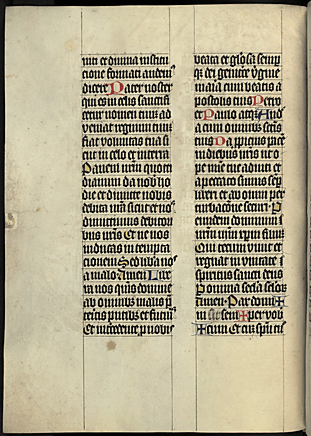 niti et divina institu
cione formati audem⁹
dicere Pater noster
qui es in celis sanctifi
cetur nomen tuum ad
veniat regnum tuum
fiat voluntas tua si
cut in celo et in terra
Panem nrm quoti
dianum da nob ho
die et dimitte nobis
debita nra sicut et nos
dimittimus debitori
bus nris Et ne nos
inducas in tempta
cionem Sed libera no
s a malo Amen Libe
ra nos qs domine
ab omnibus malis p
teritis pntibus et futur
Et intercedente p nobis
beata et glosa semp
qz dei genitce vgine
maria cum beatis a
postolis tuis Petro
et Paulo atqz And
a cum omnibus scis
tuis Da ppicius pacem
in diebus nris ut o
pe mie tue adiuti et
a peccato simus semp
liberi et ab omni per
turbacone securi P
eundem dominum
nrm ihm xpm filium
Qui tecum vivit et
regnat in unitate
spiritus sancti deus
Per omnia secla seclor
Amen Pax domini
sit semp vob
cum Et cum spu tuo